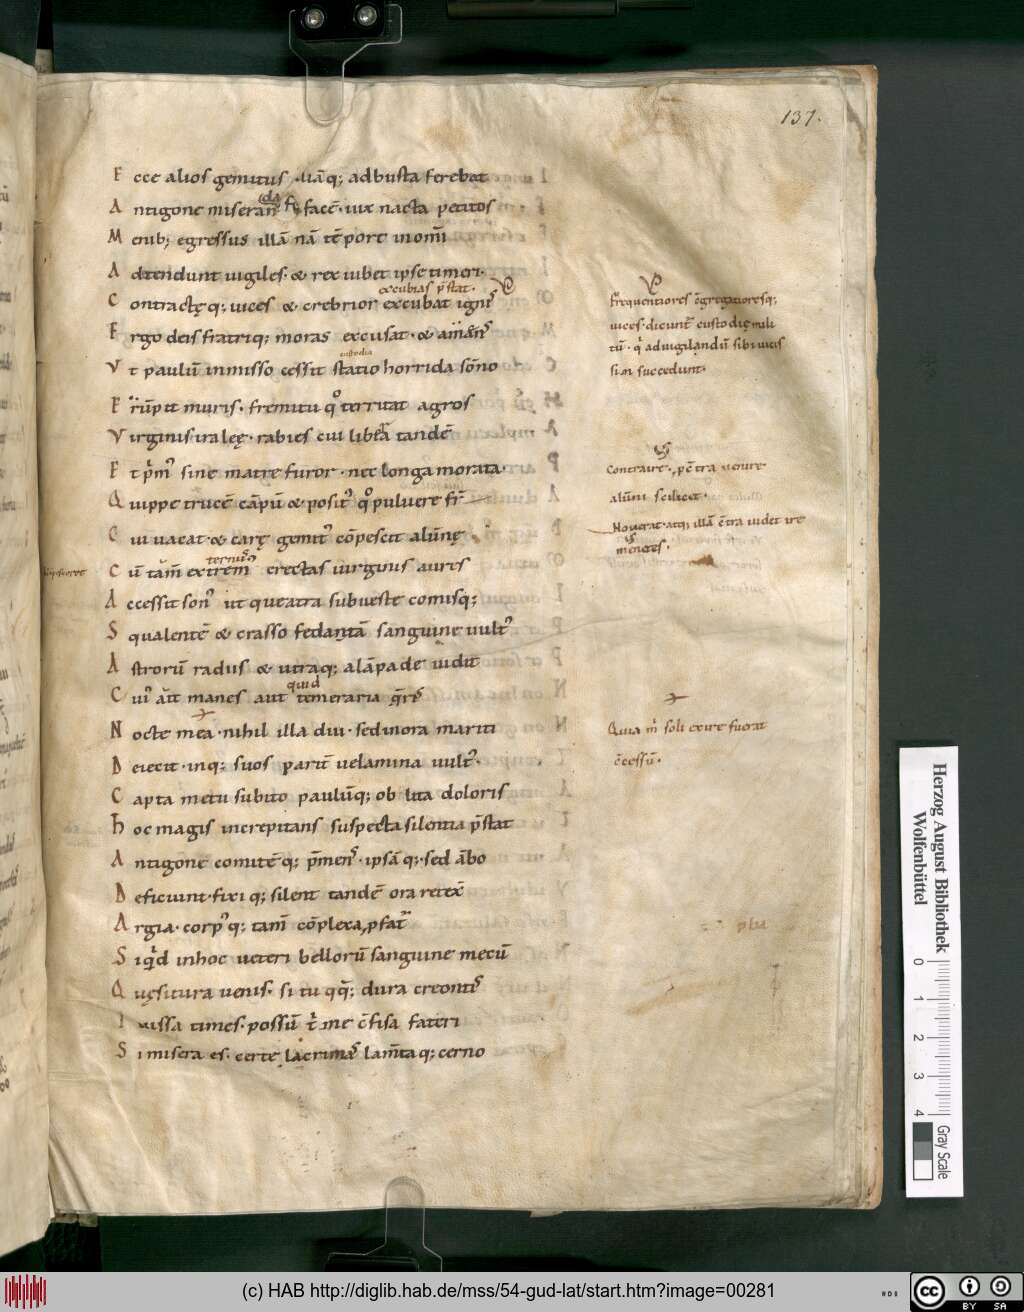 137.
E cce alios gemitus aliāq; ad busta ferebat
A ntigone miseran facē· uix nacta petitos
M enib; egressus illā nā tēpore in omi
A dtendunt uigiles· & rex iubet ipse timeri·
excubias p̄stat·
C ontractęq; uices & crebrior excubat igni
E rgo deis fratriq; moras excusat· & amens
custodia
V t paulū inmisso cessit statio horrida sōno
E rūpit muris· fremitu qo territat agros
V irginis ira leę· rabies cui libera tandē
E t pim' sine matre furor· nec longa morata·
Q uippe trucē cāpū & posit' qo puluere fr
C ui uacat· & carę gemit' cōpescit alūnę
ternus
C ū tam extrem erectas uirginis auris
A ccessit son' ut que atra subueste comisq;
S qualentē & crasso fedantā sanguine uult'
A strorū radiis & utraq; alāpade uidit
quid
C ui' ait manes aut temeraria q̄ris
N octe mea· nihil illa diu· sed in ora mariti
D eiecit· inq; suos parit uelamina uult'·
C apta metu subito paulūq; oblita doloris
H oc magis increpitans suspecta silentia p̄stat
A ntigone comitē q; p̄mens· ipsā q;· sed ābo
D eficiunt· fixi q; silent tandē ora retex
A rgia· corp' q; tam cōplexa, pfatur
S i qd in hoc ueteri bellorū sanguine mecū
Q uęsitura uenis· si tu qq; dura creontis
I ussa times· possū t me cfisa fateri
S i misera es· certe lacrimas lamtaq; cerno
Frequentiores cgregatioresq;
uices· dicunt custodię mili
tū· q ad uigilandū sibi uicis
sim succedunt·
Contraire·, pe cra uenire
alūni scilicet·
Nouerat· atq; illā cra uidet ire
mentes·
Quia m soli exire fuerat
ccessū·
Herzog August Bibliothek
Wolfenbüttel
0 1 2 3 4
Gray Scale
(c) HAB http://diglib.hab.de/mss/54-gud-lat/start.htm?image=00281
HAB
cc BY SA